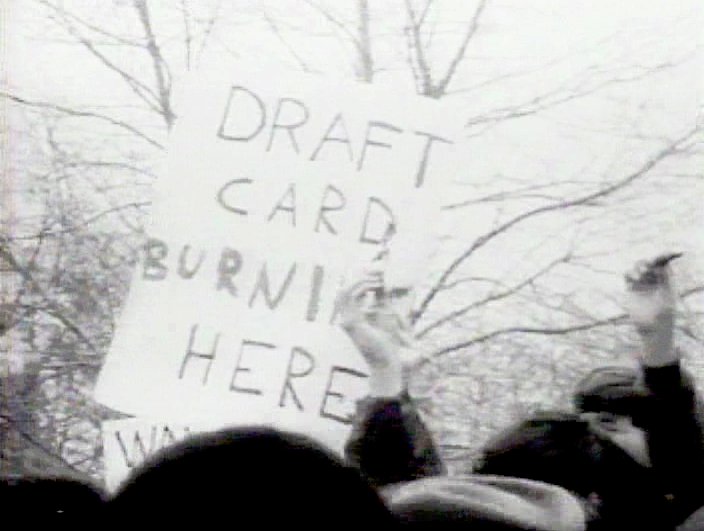 DRAFT
CARD
BURNI
HERE